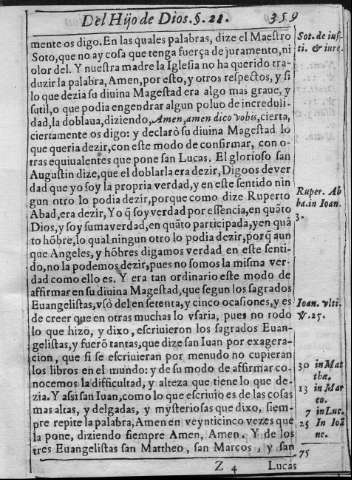 Del Hijo de Dios. §. 21. 359
mente os digo. En las quales palabras, dize el Maestro
Soto, que no ay cosa que tenga fuerça de juramento, ni
olor del. Y nuestra madre la Iglesia no ha querido tra-
duzir la palabra, Amen, por esto, y otros respectos, y si
lo que dezia su diuina Magestad era algo mas graue, y
sutil, o que podia engendrar algun poluo de increduli-
dad, la doblaua, diziendo, Amen, amen dico vobis, cierta,
ciertamente os digo: y declarò su diuina Magestad lo
que queria dezir, con este modo de confirmar, con o-
tras equiualentes que pone san Lucas. El glorioso san
Augustin dize, que el doblarla era dezir, Digoos de ver
dad que yo soy la propria verdad, y en este sentido nin
gun otro lo podia dezir, porque como dize Ruperto
Abad, era dezir, Yo q̃ soy verdad por essencia, en quãto
Dios, y soy suma verdad, en quãto participada, y en quã
to hõbre, lo qual ningun otro lo podia dezir, porq̃ aun
que Angeles, y hõbres digamos verdad en este senti-
do, no la podemos dezir, pues no somos la misma ver-
dad como ello es. Y era tan ordinario este modo de
affirmar en su diuina Magestad, que segun los sagrados
Euangelistas, vsò del en setenta, y cinco ocasiones, y es
de creer que en otras muchas lo vsaria, pues no todo
lo que hizo, y dixo, escriuieron los sagrados Euan-
gelistas, y fuerõ tantas, que dize san Iuan por exagera-
cion, que si se escriuieran por menudo no cupieran
los libros en el mundo: y de su modo de affirmar co-
nocemos la difficultad, y alteza que tiene lo que de-
zia. Y assi san Iuan, como lo que escriuio es de las cosas
mas altas, y delgadas, y mysteriosas que dixo, siem-
pre repite la palabra, Amen en veynticinco vezes que
la pone, diziendo siempre Amen, Amen. Y de los
tres Euangelistas san Mattheo, san Marcos, y san
Z 4 Lucas
Sot. de ius-
ti. & iure.
Ruper. Ab
ba. in Ioan.
3.
Ioan. vlti.
℣. 25.
30 in Mat
thæ.
13 in Mar
co.
7 in Luc.
25 In Ioã
ne.
75